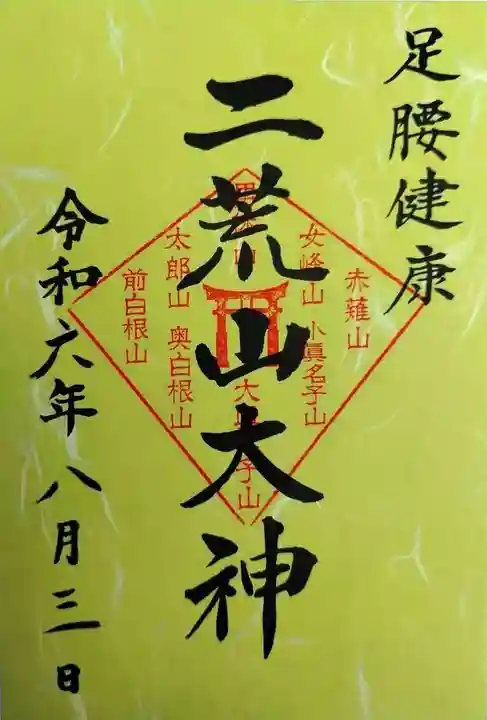 足腰健康
二荒山大神
令和六年八月三日
赤薙山
女峰山
小眞名子山
太郎山
奥白根山
前白根山